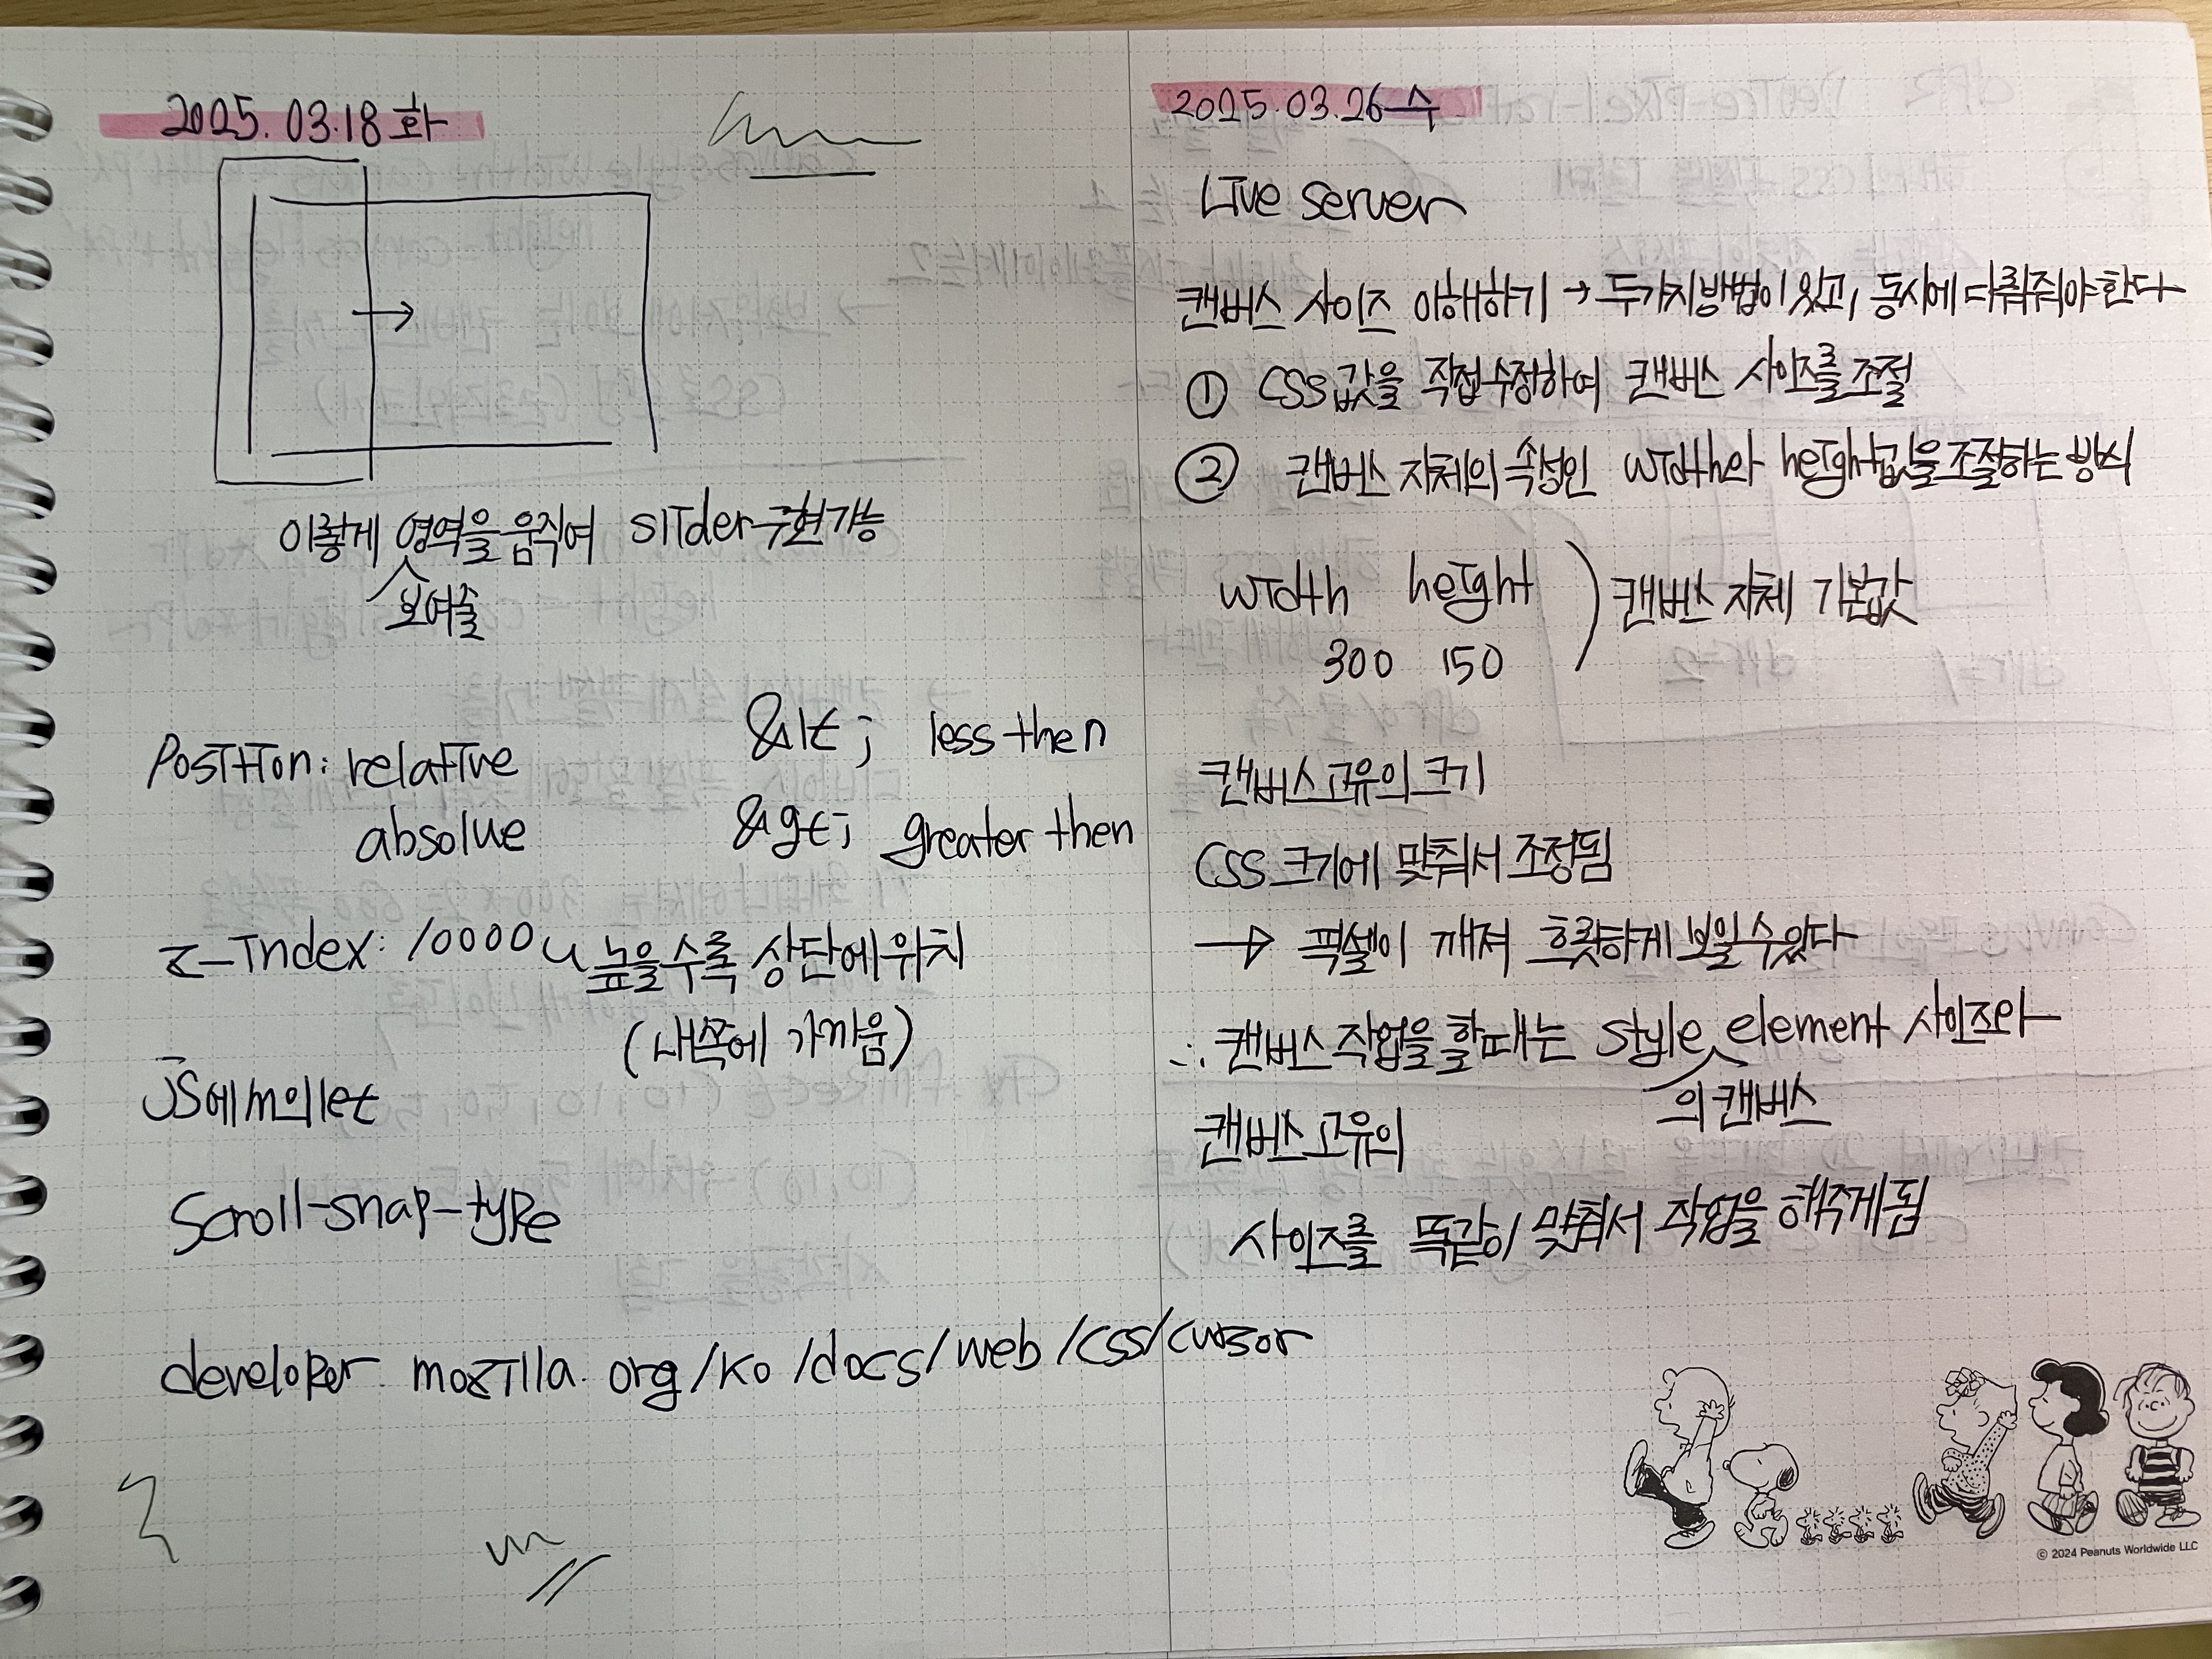 2025.03.18 화
이렇게 영역을 움직여 slider 구현가능
보여줄
Position: relative
absolue
&lt; less then
&gt; greater then
z-index: 10000 높을수록 상단에 위치
(내쪽에 가까움)
JS에서의 let
Scroll-snap-type
developer.mozilla.org/ko/docs/web/css/cursor
2025.03.26 수
Live server
캔버스 사이즈 이해하기 → 두가지방법이 있고, 동시에 다뤄줘야 한다
① CSS값을 직접수정하여 캔버스 사이즈를 조절
② 캔버스 자체의 속성인 width와 height값을 조절하는 방식
width height ) 캔버스 자체 기본값
300 150
캔버스고유의 크기
CSS 크기에 맞춰서 조정됨
→ 픽셀이 깨져 흐릿하게 보일 수 있다
∴ 캔버스 작업을 할때는 style element 사이즈와
의 캔버스
캔버스고유의
사이즈를 똑같이 맞춰서 작업을 해주게됨
© 2024 Peanuts Worldwide LLC